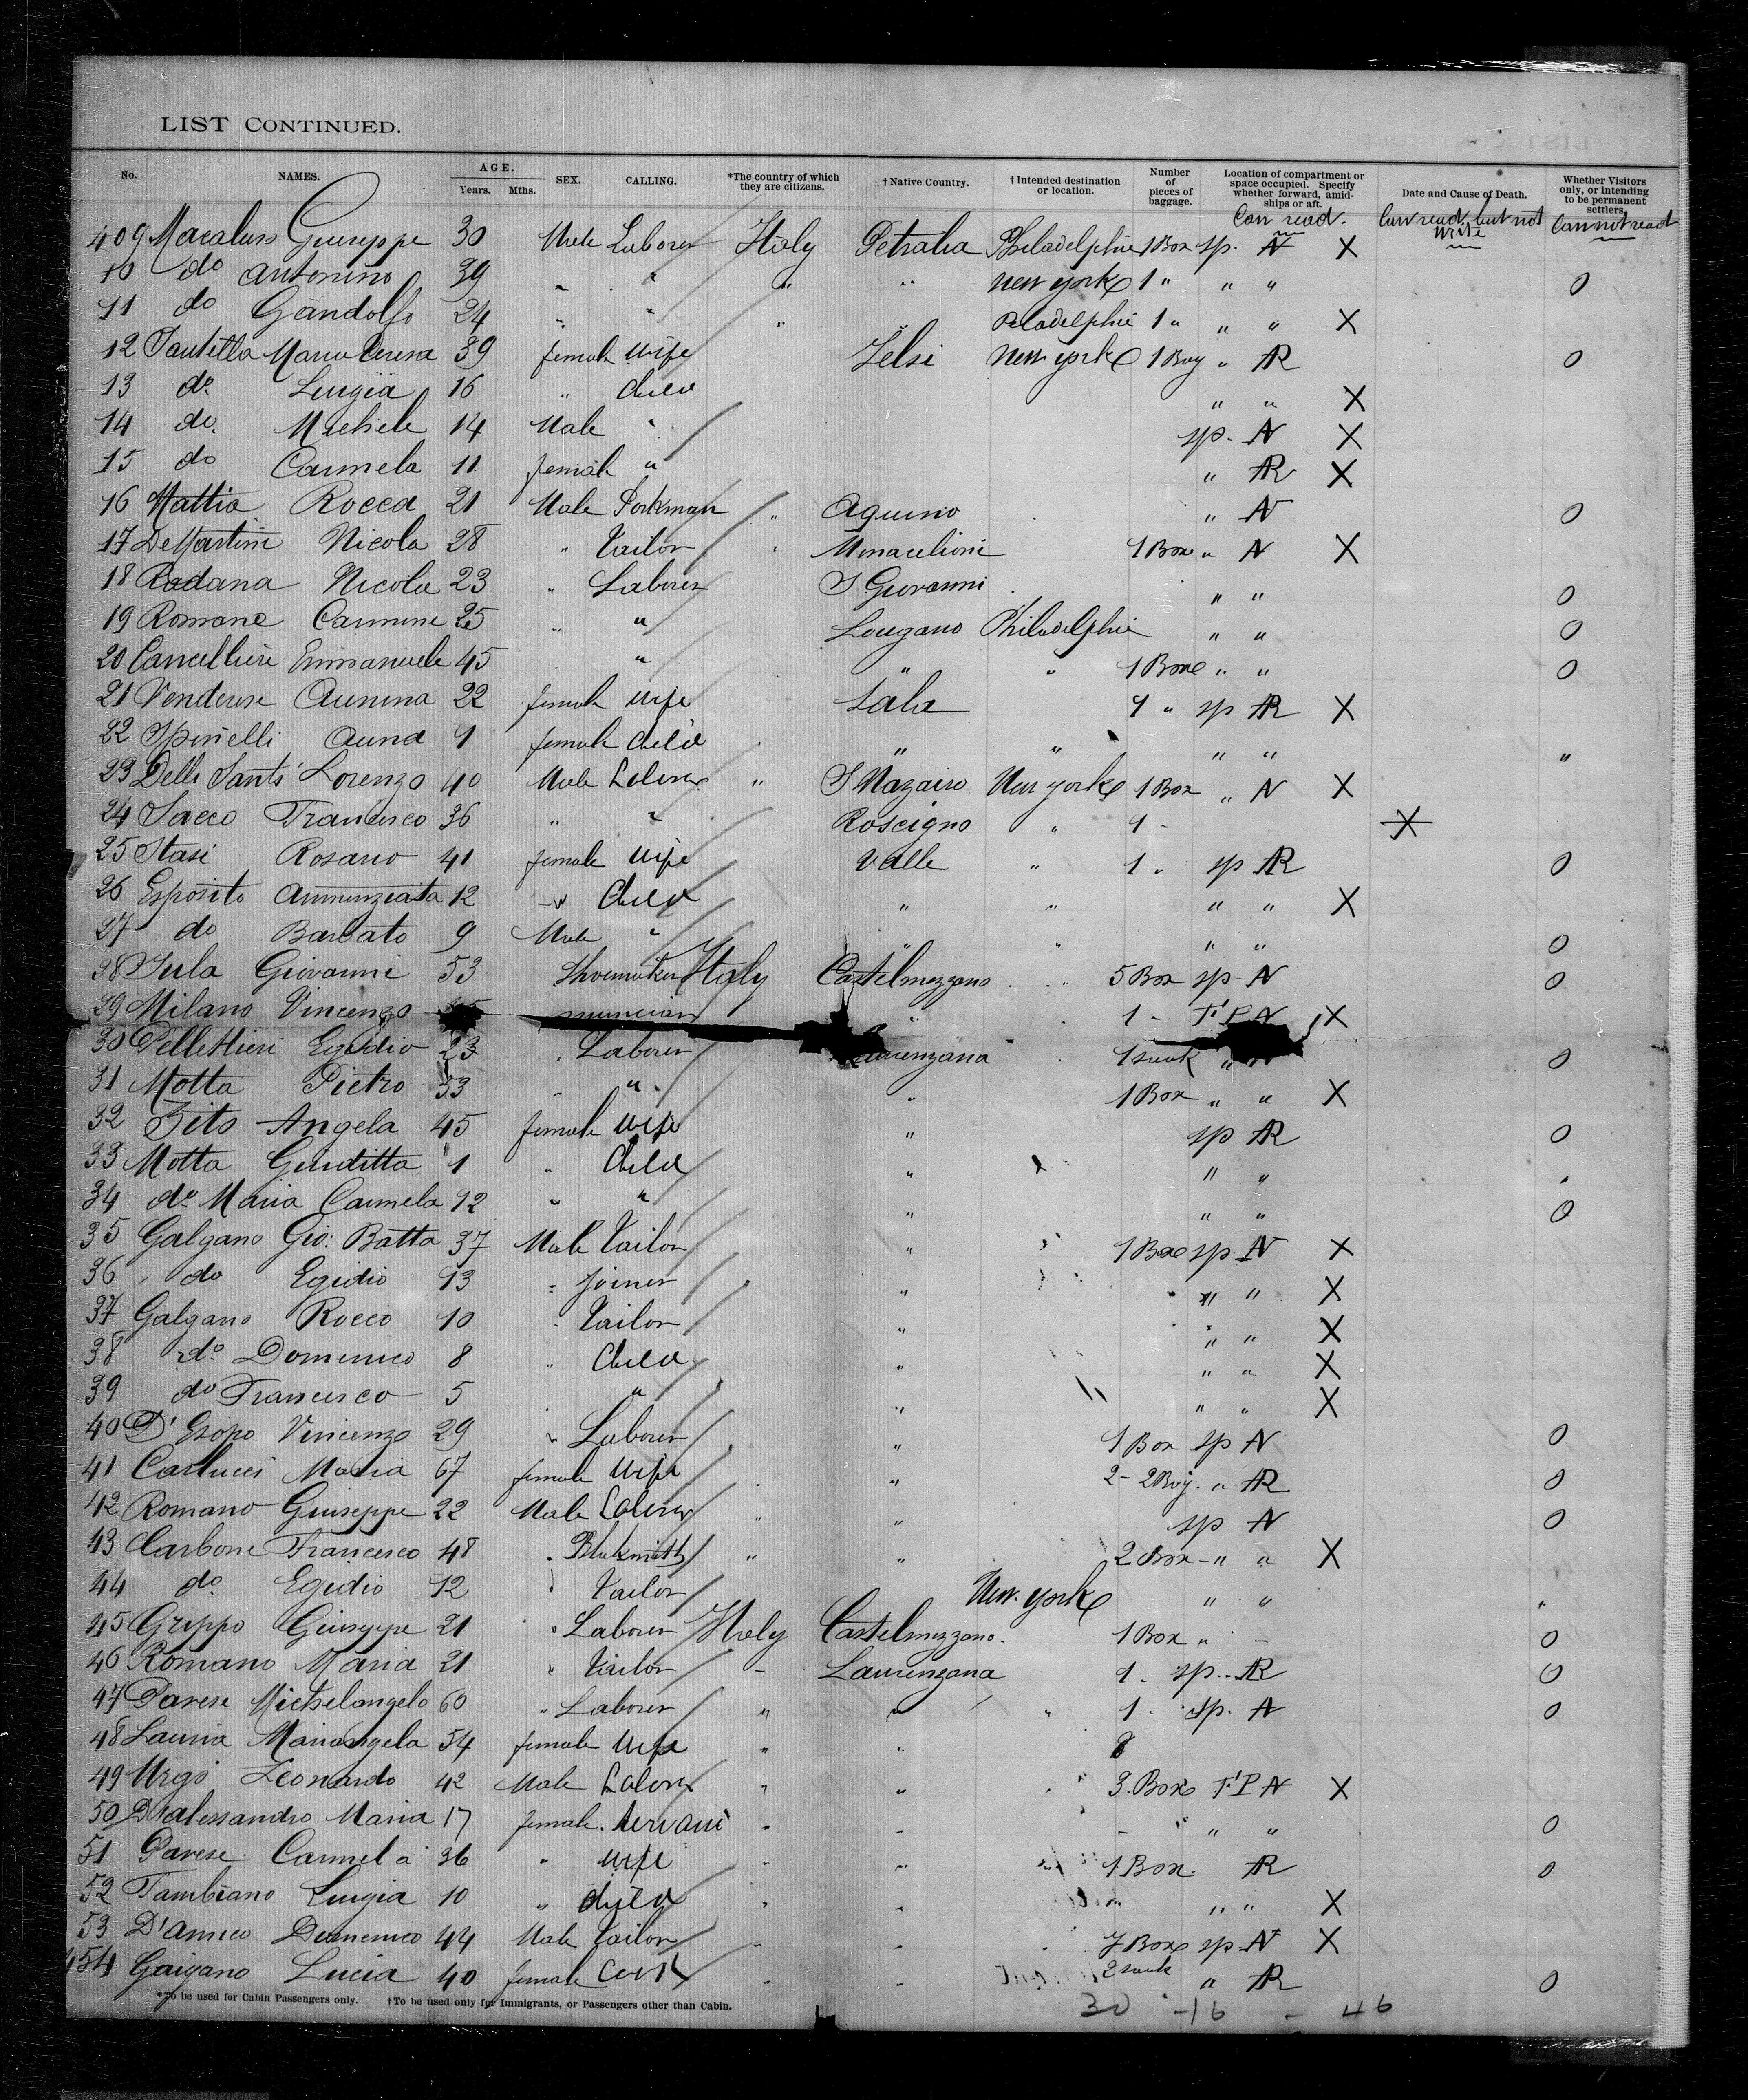 LIST CONTINUED.
No. NAMES. AGE. Years. Mths. SEX. CALLING. *The country of which they are citizens. †Native Country. †Intended destination or location. Number of pieces of baggage. Location of compartment or space occupied. Specify whether forward, amidships or aft. Date and Cause of Death. Whether Visitors only, or intending to be permanent settlers.
Can read. Can read, but not write Cannot read
409 Macaluso Giuseppe 30 Male Laborer Italy Petralia Philadelphie 1 Box sp. N X
10 do Antonino 39 " " " " New york 1 " " " O
11 do Gandolfo 24 " " " " Piladelphie 1 " " " X
12 Maria Teresa 39 female wife Jelsi New york 1 Bag " R O
13 do. Luigia 16 " Child " " X
14 do. Michele 14 Male " sp. N X
15 do Carmela 11 female " " R X
16 Mattia Rocca 21 Male " Aquino " N O
17 DeMartini Nicola 28 " Tailor " 1 Box " N X
18 Radana Nicola 23 " Laborer S Giovanni " " O
19 Romano Carmine 25 " " Longano Philadelphie " " O
20 Cancelliere Emmanuele 45 " " " " 1 Box " " O
21 22 female wife Sala 1 " sp R X
22 Spinelli Anna 1 female Child " " " " "
23 Delli Santi Lorenzo 40 Male Laborer " S Nazairo New york 1 Box " N X
24 Sacco Francesco 36 " " Roscigno " 1 - X
25 Stasi Rosario 41 female wife Valle " 1 " sp R O
26 Esposito Annunziata 12 " Child " " " " X
27 do Barbato 9 Male " " " " " O
28 Jula Giovanni 53 Shoemaker Italy Castelmezzano 5 Box sp N O
29 Milano Vincenzo musician " 1 - N X
30 Pellettieri Egidio 23 " Laborer Laurenzana 1 sack " N O
31 Motta Pietro 53 " " " 1 Box " " X
32 Zito Angela 45 female wife " sp R O
33 Motta Giuditta 1 " Child " " "
34 do. Maria Carmela 12 " " " " " O
35 Galgano Gio: Batta 37 Male Tailor " 1 Box sp. N X
36 do Egidio 13 " Joiner " " " X
37 Galgano Rocco 10 " Tailor " " " X
38 do. Domenico 8 " Child " " " X
39 do Francesco 5 " " " " " X
40 D'Esopo Vincenzo 29 " Laborer " 1 Box sp N O
41 Carlucci Maria 67 female wife " 2 - 2 Bag. " R O
42 Romano Giuseppe 22 Male Laborer " " sp N O
43 Carbone Francesco 48 " Blaksmith " " 2 Box - " " X
44 do. Egidio 12 " Tailor New-york " " "
45 Grippo Giuseppe 21 " Laborer Italy Castelmezzano. 1 Box " - O
46 Romano Maria 21 " Tailor - Laurenzana 1 . sp. R O
47 Pavese Michelangelo 60 " Laborer " " " 1 . sp. N O
48 Lauria Mariangela 54 female wife " "
49 Urgo Leonardo 42 Male Laborer " " " 3 Box N X
50 D'alessandro Maria 17 female. servant " " - " " O
51 Pavese Carmela 36 " wife " " 1 Box. R O
52 Tambiano Luigia 10 " child " " " " X
53 D'amico Domenico 44 Male Tailor " " 7 Box sp N X
454 Lucia 40 female Cook " " 2 sack " R O
*To be used for Cabin Passengers only. †To be used only for Immigrants, or Passengers other than Cabin.
30 - 16 - 46